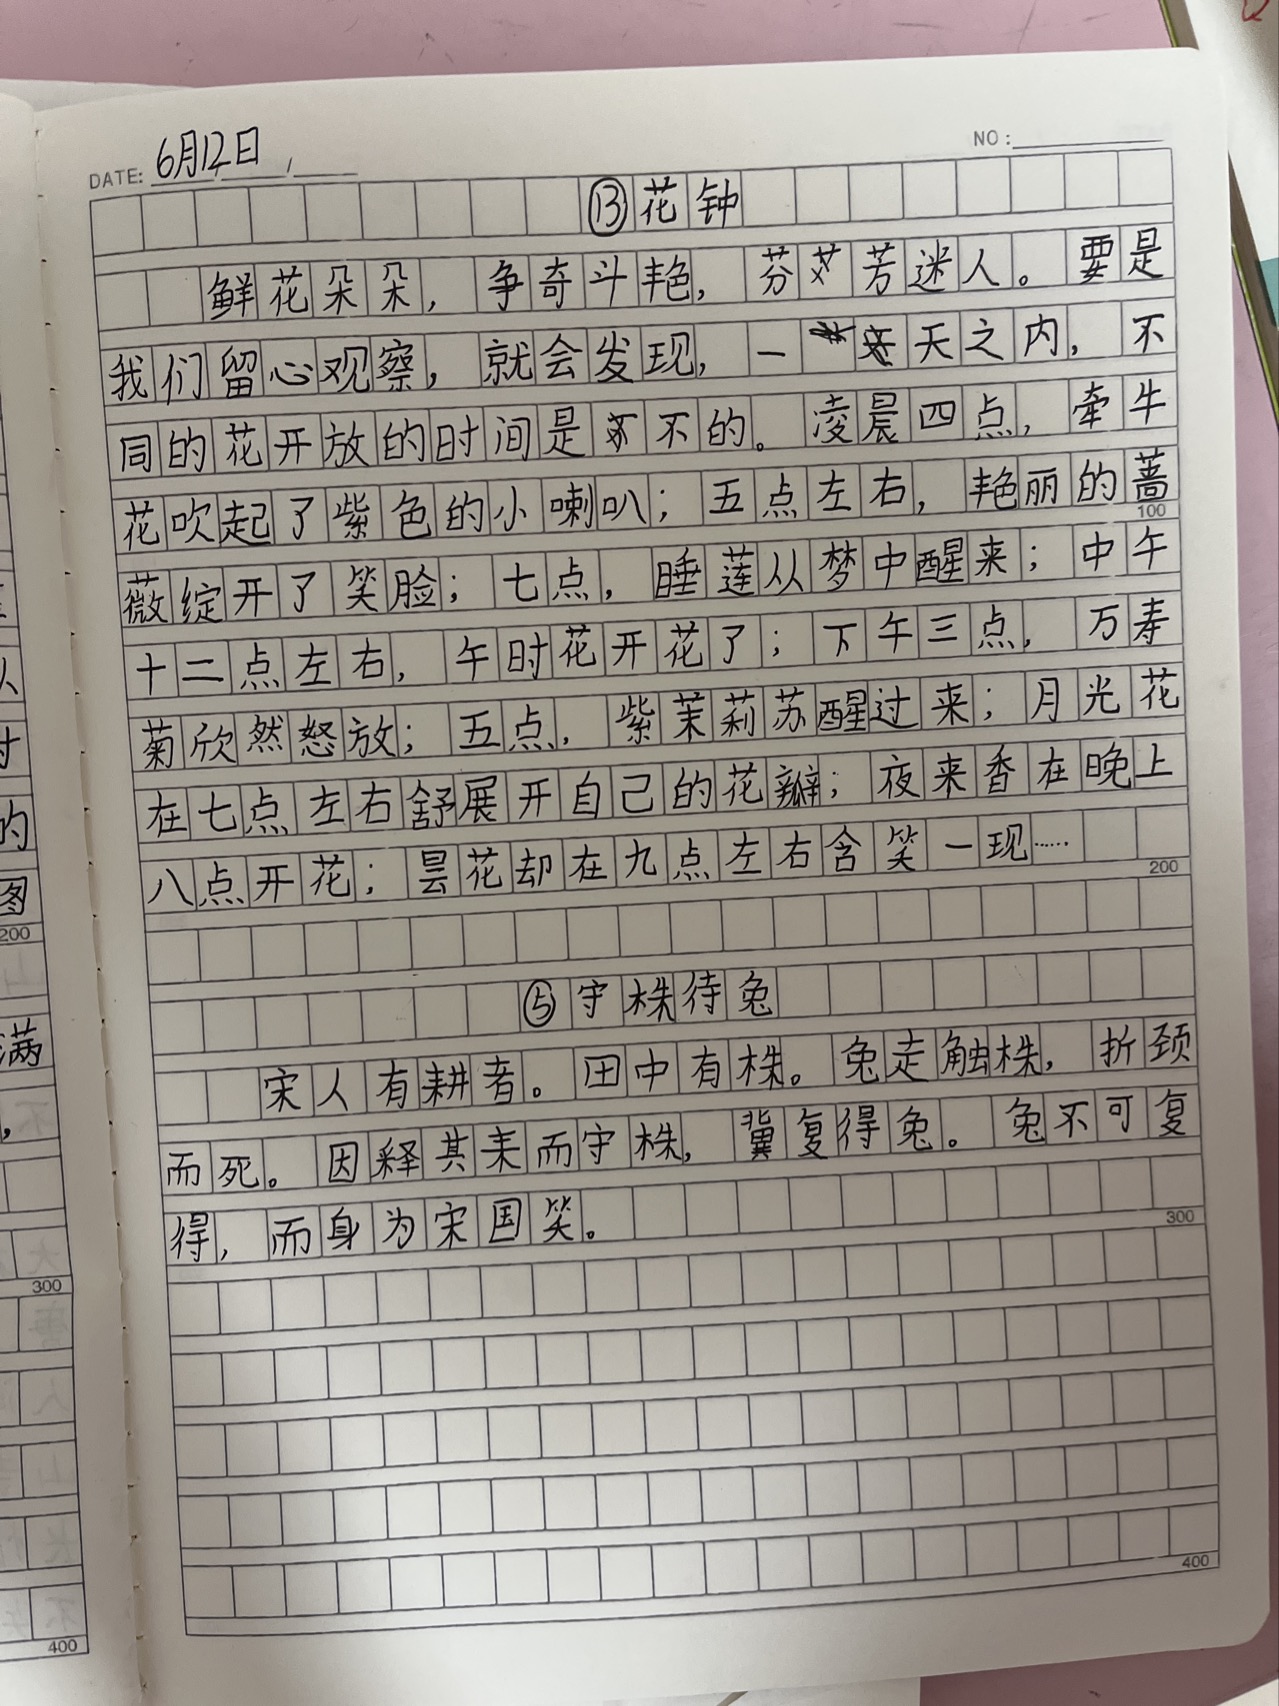 DATE: 6月12日 /
NO:
⑬花钟
鲜花朵朵，争奇斗艳，芬芳迷人。要是
我们留心观察，就会发现，一天之内，不
同的花开放的时间是不的。凌晨四点，牵牛
花吹起了紫色的小喇叭；五点左右，艳丽的蔷
100
薇绽开了笑脸；七点，睡莲从梦中醒来；中午
十二点左右，午时花开花了；下午三点，万寿
菊欣然怒放；五点，紫茉莉苏醒过来；月光花
在七点左右舒展开自己的花瓣；夜来香在晚上
八点开花；昙花却在九点左右含笑一现……
200
⑤守株待兔
宋人有耕者。田中有株。兔走触株，折颈
而死。因释其耒而守株，冀复得兔。兔不可复
得，而身为宋国笑。
300
400
从
讨
的
图
200
满
，
300
400